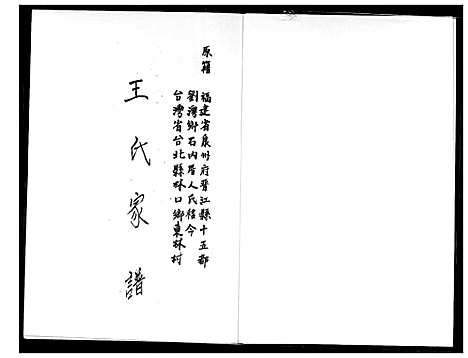 原籍 福建省泉州府晉江縣十五都
劉灣鄉石內厝人氏徒今
台灣省台北縣林口鄉東林村
王氏家譜